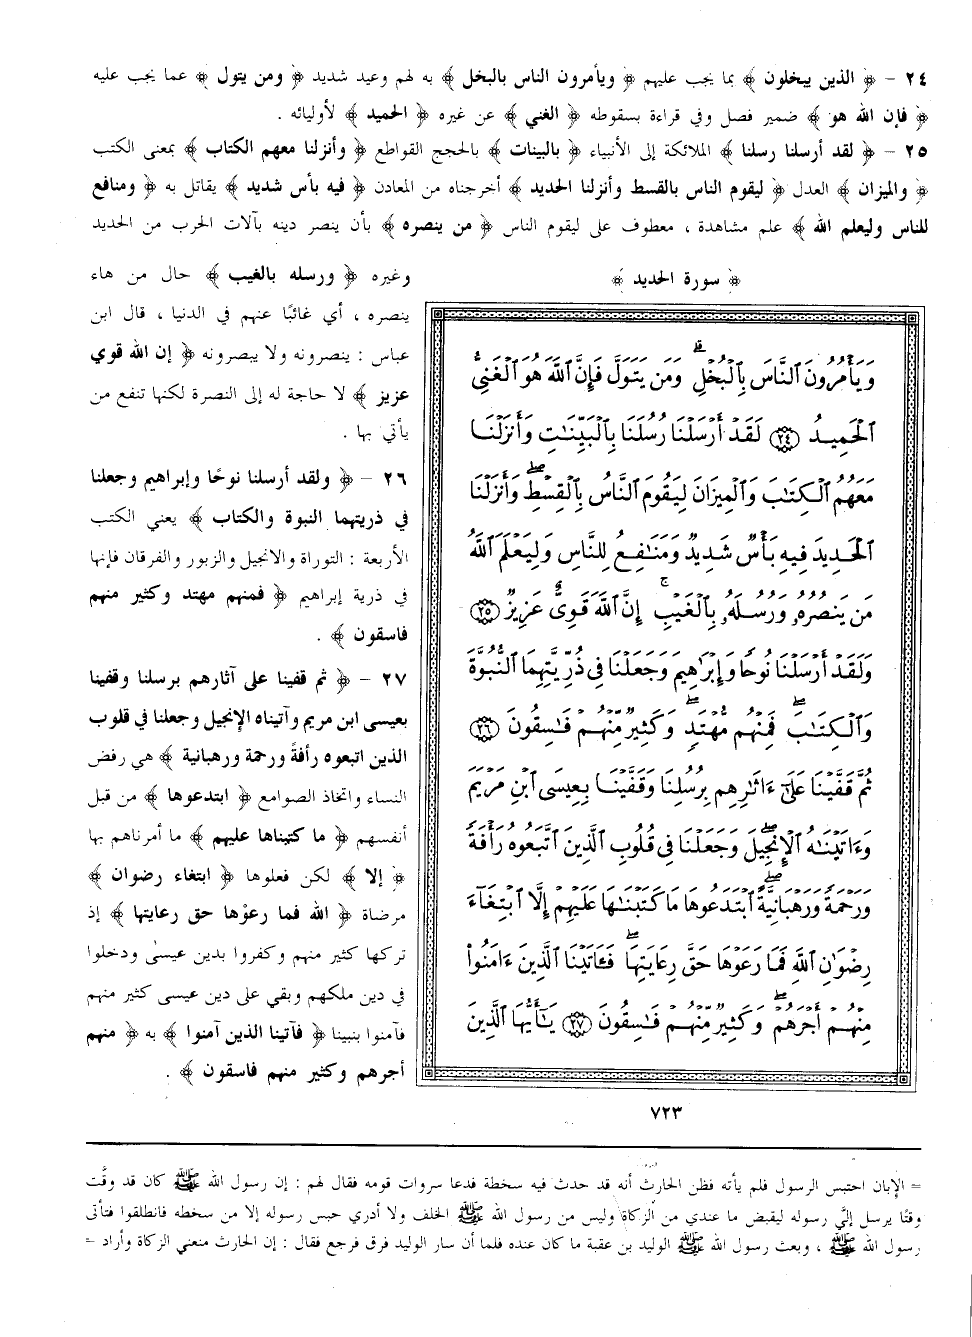 ٢٤ - ﴿ الذين يبخلون ﴾ بما يجب عليهم ﴿ ويأمرون الناس بالبخل ﴾ به لهم وعيد شديد ﴿ ومن يتول ﴾ عما يجب عليه
﴿ فإن الله هو ﴾ ضمير فصل وفي قراءة بسقوطه ﴿ الغني ﴾ عن غيره ﴿ الحميد ﴾ لأوليائه .
٢٥ - ﴿ لقد أرسلنا رسلنا ﴾ الملائكة إلى الأنبياء ﴿ بالبينات ﴾ بالحجج القواطع ﴿ وأنزلنا معهم الكتاب ﴾ بمعنى الكتب
﴿ والميزان ﴾ العدل ﴿ ليقوم الناس بالقسط وأنزلنا الحديد ﴾ أخرجناه من المعادن ﴿ فيه بأس شديد ﴾ يقاتل به ﴿ ومنافع
للناس وليعلم الله ﴾ علم مشاهدة ، معطوف على ليقوم الناس ﴿ من ينصره ﴾ بأن ينصر دينه بآلات الحرب من الحديد
وغيره ﴿ ورسله بالغيب ﴾ حال من هاء
ينصره ، أي غائبًا عنهم في الدنيا ، قال ابن
عباس : ينصرونه ولا يبصرونه ﴿ إن الله قوي
عزيز ﴾ لا حاجة له إلى النصرة لكنها تنفع من
يأتي بها .
٢٦ - ﴿ ولقد أرسلنا نوحًا وإبراهيم وجعلنا
في ذريتهما النبوة والكتاب ﴾ يعني الكتب
الأربعة : التوراة والانجيل والزبور والفرقان فإنها
في ذرية إبراهيم ﴿ فمنهم مهتد وكثير منهم
فاسقون ﴾ .
٢٧ - ﴿ ثم قفينا على آثارهم برسلنا وقفينا
بعيسى ابن مريم وآتيناه الإنجيل وجعلنا في قلوب
الذين اتبعوه رأفةً ورحمة ورهبانية ﴾ هي رفض
النساء واتخاذ الصوامع ﴿ ابتدعوها ﴾ من قبل
أنفسهم ﴿ ما كتبناها عليهم ﴾ ما أمرناهم بها
﴿ إلا ﴾ لكن فعلوها ﴿ ابتغاء رضوان ﴾
مرضاة ﴿ الله فما رعوْها حق رعايتها ﴾ إذ
تركها كثير منهم وكفروا بدين عيسىٰ ودخلوا
في دين ملكهم وبقي على دين عيسى كثير منهم
فآمنوا بنبينا ﴿ فآتينا الذين آمنوا ﴾ به ﴿ منهم
أجرهم وكثير منهم فاسقون ﴾ .
﴿ سورة الحديد ﴾
وَيَأْمُرُونَ ٱلنَّاسَ بِٱلْبُخْلِ ۗ وَمَن يَتَوَلَّ فَإِنَّ ٱللَّهَ هُوَ ٱلْغَنِىُّ
ٱلْحَمِيدُ ۝٢٤ لَقَدْ أَرْسَلْنَا رُسُلَنَا بِٱلْبَيِّنَٰتِ وَأَنزَلْنَا
مَعَهُمُ ٱلْكِتَٰبَ وَٱلْمِيزَانَ لِيَقُومَ ٱلنَّاسُ بِٱلْقِسْطِ ۖ وَأَنزَلْنَا
ٱلْحَدِيدَ فِيهِ بَأْسٌ شَدِيدٌ وَمَنَٰفِعُ لِلنَّاسِ وَلِيَعْلَمَ ٱللَّهُ
مَن يَنصُرُهُۥ وَرُسُلَهُۥ بِٱلْغَيْبِ ۚ إِنَّ ٱللَّهَ قَوِىٌّ عَزِيزٌ ۝٢٥
وَلَقَدْ أَرْسَلْنَا نُوحًا وَإِبْرَٰهِيمَ وَجَعَلْنَا فِى ذُرِّيَّتِهِمَا ٱلنُّبُوَّةَ
وَٱلْكِتَٰبَ ۖ فَمِنْهُم مُّهْتَدٍ ۖ وَكَثِيرٌ مِّنْهُمْ فَٰسِقُونَ ۝٢٦
ثُمَّ قَفَّيْنَا عَلَىٰٓ ءَاثَٰرِهِم بِرُسُلِنَا وَقَفَّيْنَا بِعِيسَى ٱبْنِ مَرْيَمَ
وَءَاتَيْنَٰهُ ٱلْإِنجِيلَ ۖ وَجَعَلْنَا فِى قُلُوبِ ٱلَّذِينَ ٱتَّبَعُوهُ رَأْفَةً
وَرَحْمَةً وَرَهْبَانِيَّةً ۖ ٱبْتَدَعُوهَا مَا كَتَبْنَٰهَا عَلَيْهِمْ إِلَّا ٱبْتِغَآءَ
رِضْوَٰنِ ٱللَّهِ فَمَا رَعَوْهَا حَقَّ رِعَايَتِهَا ۖ فَـَٔاتَيْنَا ٱلَّذِينَ ءَامَنُوا۟
مِنْهُمْ أَجْرَهُمْ ۖ وَكَثِيرٌ مِّنْهُمْ فَٰسِقُونَ ۝٢٧ يَٰٓأَيُّهَا ٱلَّذِينَ
٧٢٣
= الإبان احتبس الرسول فلم يأته فظن الحارث أنه قد حدث فيه سخطة فدعا سروات قومه فقال لهم : إن رسول الله ﷺ كان قد وقَّت
وقتًا يرسل إليَّ رسوله ليقبض ما عندي من الزكاة وليس من رسول الله ﷺ الخلف ولا أدري حبس رسوله إلا من سخطه فانطلقوا فنأتى
رسول الله ﷺ ، وبعث رسول الله ﷺ الوليد بن عقبة ما كان عنده فلما أن سار الوليد فرق فرجع فقال : إن الحارث منعني الزكاة وأراد =